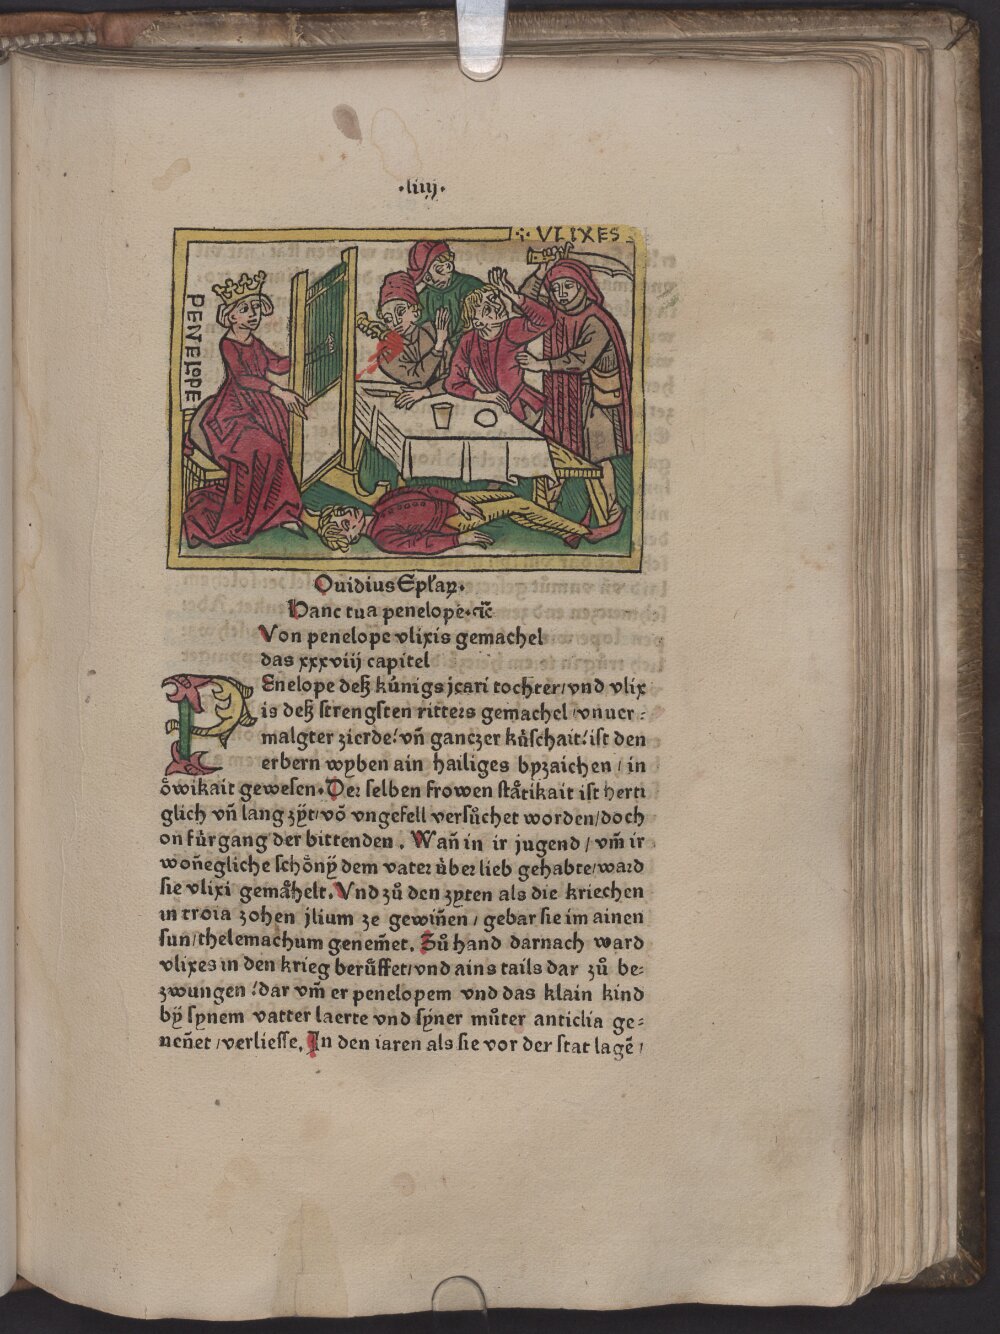 ·liiij·
·:· VLIXES
PENELOPE
Ouidius Eplaꝝ·
Hanc tua penelope·ꝛc̄
Von penelope vlixis gemachel
das xxxviij capitel
PEnelope deß kúnigs jcari tochter/vnd vlix
is deß strengsten ritters gemachel/vnuer⸗
malgter zierde/vn̄ ganczer kúͤschait/ist den
erbern wyben ain hailiges byzaichen/in
oͤwikait gewesen. Der selben frowen staͤtikait ist herti
glich vn̄ lang zÿt/vō vngefell versuͦchet worden/doch
on fúrgang der bittenden. Wan̄ in ir jugend/vm̄ ir
won̄egliche schoͤnÿ dem vater úber lieb gehabte/ward
sie vlixi gemaͤhelt. Vnd zuͦ den zyten als die kriechen
in troia zohen jlium ze gewin̄en/gebar sie im ainen
sun/thelemachum genem̄et. Zuͦ hand darnach ward
vlixes in den krieg beruͤffet/vnd ains tails dar zuͦ be⸗
zwungen/dar vm̄ er penelopem vnd das klain kind
bÿ synem vatter laerte vnd sÿner muͦter anticlia ge⸗
nen̄et/verliesse. In den iaren als sie vor der stat lagē/